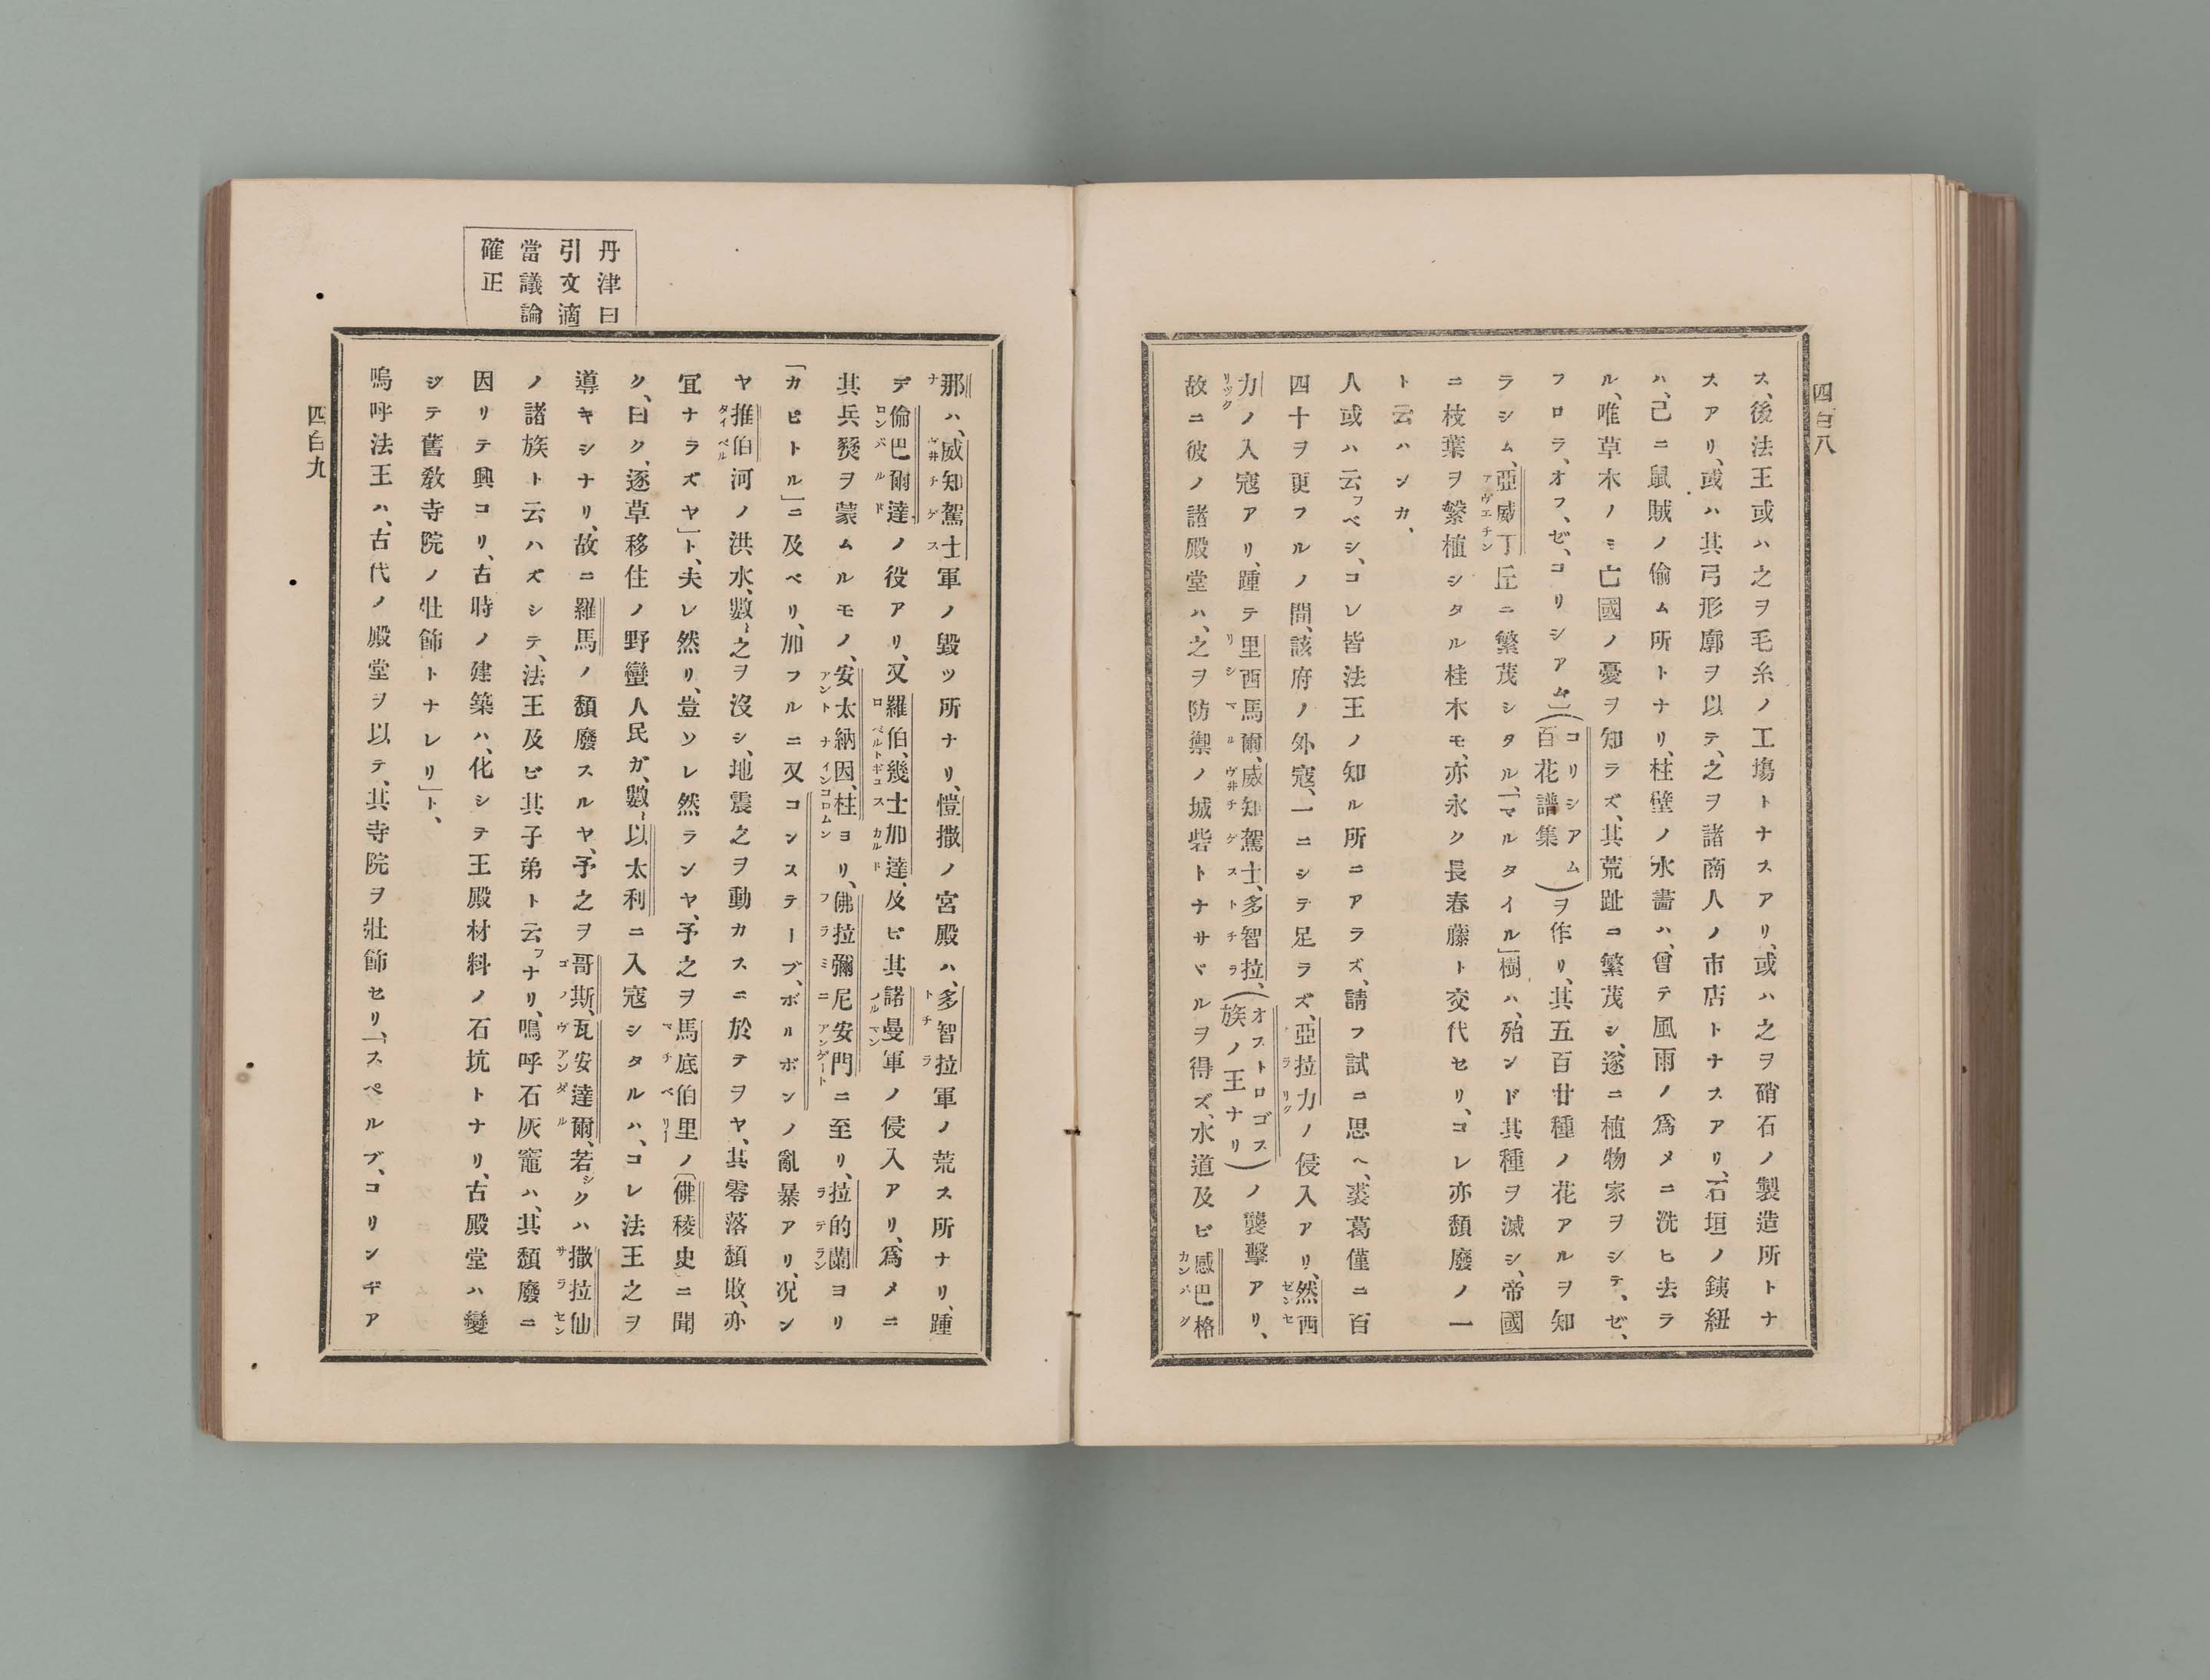 四百八
ス、後法王或ハ之ヲ毛糸ノ工塲トナスアリ、或ハ之ヲ硝石ノ製造所トナ
スアリ、或ハ其弓形廓ヲ以テ、之ヲ諸商人ノ市店トナスアリ、石垣ノ銕紐
ハ、己ニ鼠賊ノ偷ム所トナリ、柱壁ノ水畵ハ、曾テ風雨ノ爲メニ洗ヒ去ラ
ル、唯草木ノミ亡國ノ憂ヲ知ラズ、其荒趾コ繁茂シ、遂ニ植物家ヲシテ、ゼ、
フロラ、オフ、ゼ、コリシアム」(コリシアム百花譜集)ヲ作リ、其五百廿種ノ花アルヲ知
ラシム、亞威丁アヴエチン丘ニ繁茂シタル、「マルタイル」樹ハ、殆ンド其種ヲ滅シ、帝國
ニ枝葉ヲ繁植シタル桂木モ、亦永ク長春藤ト交代セリ、コレ亦頽廢ノ一
ト云ハンカ、
人或ハ云フベシ、コレ皆法王ノ知ル所ニアラズ、請フ試ニ思ヘ、裘葛僅ニ百
四十ヲ更フルノ間、該府ノ外寇、一ニシテ足ラズ、亞拉力アラリクノ侵入アリ、然西ゼンセ
力リックノ入寇アリ、踵テ里西馬爾リシマル、威知駕士ヴ井チゲス、多智拉トチラ、(オストロゴス族ノ王ナリ)ノ襲擊アリ、
故ニ彼ノ諸殿堂ハ、之ヲ防禦ノ城砦トナサヾルヲ得ズ、水道及ビ感巴格カンパグ
丹津曰
引文適
當議論
確正
那ナハ、威知駕士ヴ井チゲス軍ノ毀ツ所ナリ、愷撒ノ宮殿ハ、多智拉トチラ軍ノ荒ス所ナリ、踵
デ倫巴爾達ロンバルドノ役アリ、又羅伯、幾士加達ロベルトギュスカルド、及ビ其諾曼ノルマン軍ノ侵入アリ、爲メニ
其兵燹ヲ蒙ムルモノ、安太納因、柱アントナインコロムンヨリ、佛拉彌尼安門フラミニアンゲートニ至リ、拉的蘭ラテランヨリ
「カピトル」ニ及ベリ、加フルニ又コンステーブ、ボルボンノ亂暴アリ、况ン
ヤ推伯タイベル河ノ洪水、數〻之ヲ沒シ、地震之ヲ動カスニ於テヲヤ、其零落頽敗、亦
宜ナラズヤ」ト、夫レ然リ、豈ソレ然ランヤ、予之ヲ馬底伯里マチベリーノ〔佛稜史ニ聞
ク、曰ク、逐草移住ノ野蠻人民ガ、數〻以太利ニ入寇シタルハ、コレ法王之ヲ
導キシナリ、故ニ羅馬ノ頽廢スルヤ、予之ヲ哥斯ゴス、瓦安達爾ヴアンダル、若シクハ撒拉仙サラセン
ノ諸族ト云ハズシテ、法王及ビ其子弟ト云フナリ、嗚呼石灰竈ハ、其頽廢ニ
因リテ興コリ、古時ノ建築ハ、化シテ王殿材料ノ石坑トナリ、古殿堂ハ變
ジテ舊敎寺院ノ壯飾トナレリ」ト、
嗚呼法王ハ、古代ノ殿堂ヲ以テ、其寺院ヲ壯飾セリ、「スペルブ、コリンギア
四百九